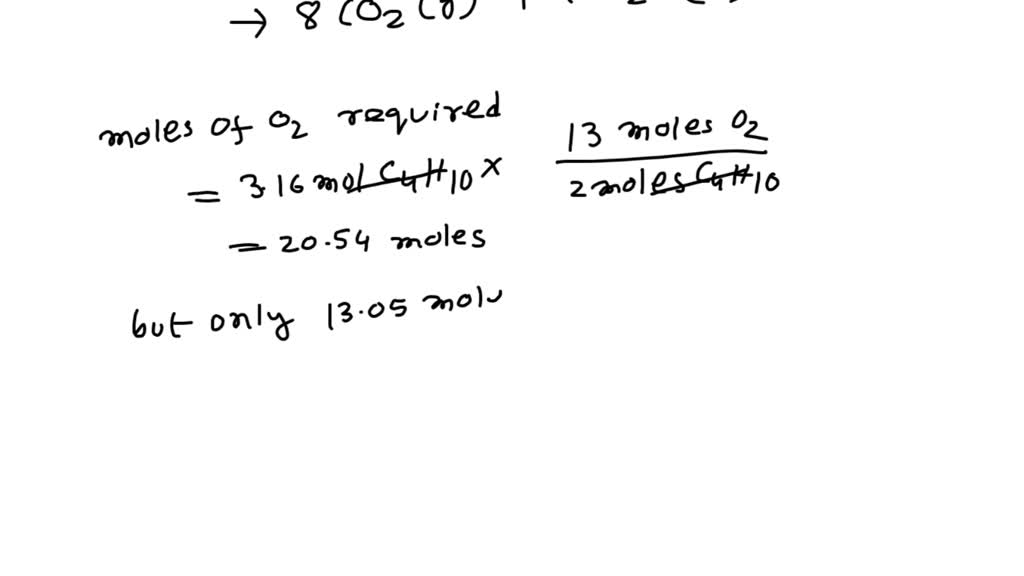 → 8 CO2 (g)
moles of O2 required
= 3.16 mol C4H10 × 13 moles O2 / 2 moles C4H10
= 20.54 moles
but only 13.05 mol